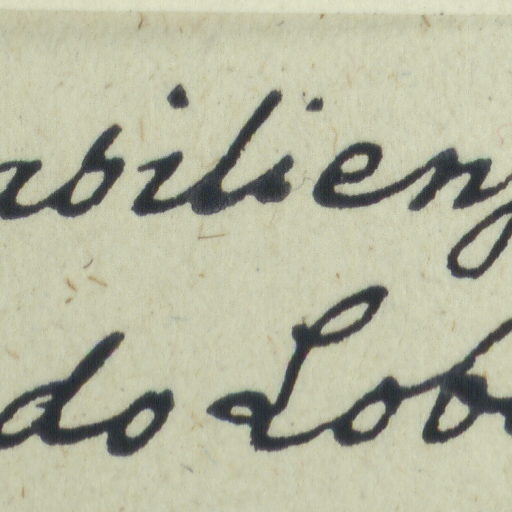 asilien,
do Lob